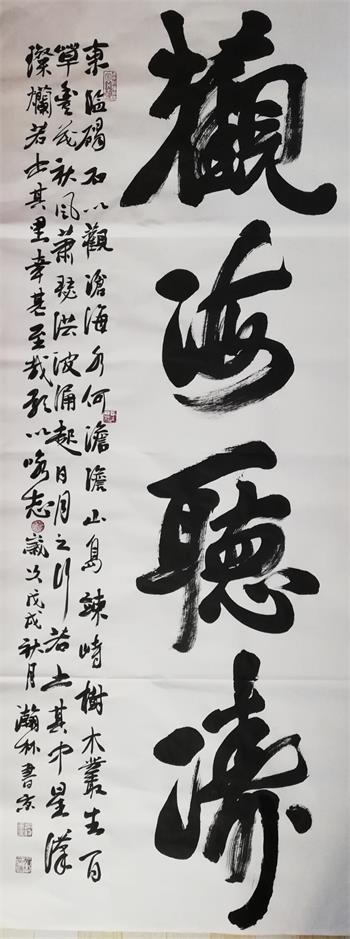 觀海聽濤
東臨碣石以觀滄海水何澹澹山島竦峙樹木叢生百
草豐茂秋風蕭瑟洪波涌起日月之行若出其中星漢
璨爛若出其里幸甚至哉歌以咏志歲次戊戌秋月瀚林書